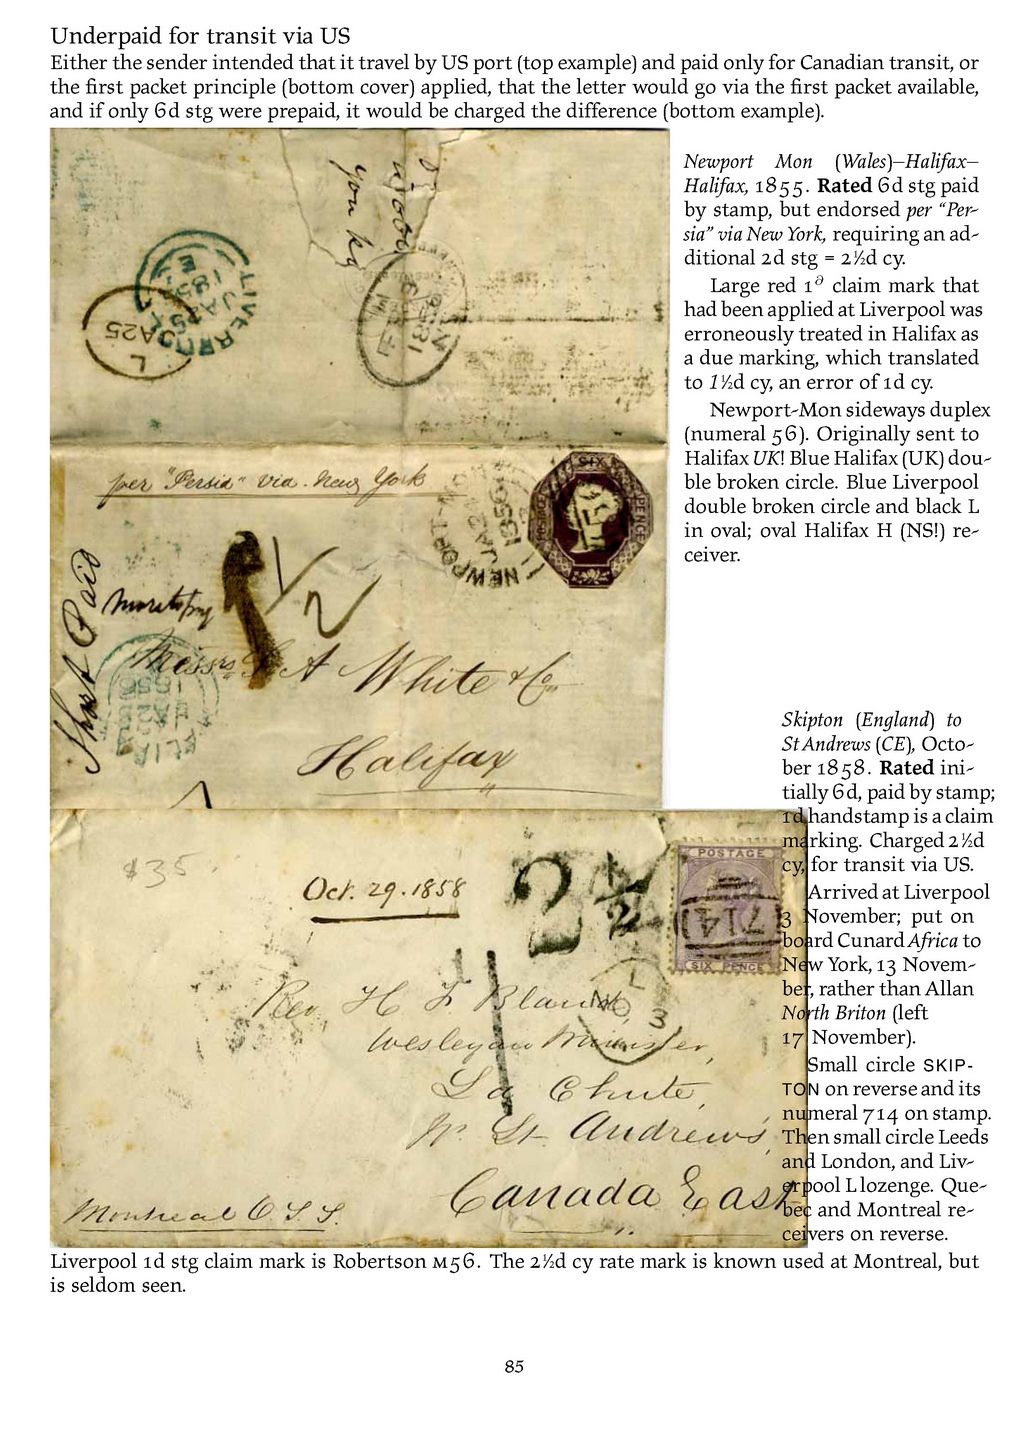 Underpaid for transit via US
Either the sender intended that it travel by US port (top example) and paid only for Canadian transit, or
the first packet principle (bottom cover) applied, that the letter would go via the first packet available,
and if only 6d stg were prepaid, it would be charged the difference (bottom example).
Newport Mon (Wales)–Halifax–
Halifax, 1855. Rated 6d stg paid
by stamp, but endorsed per “Per-
sia” via New York, requiring an ad-
ditional 2d stg = 2½d cy.
Large red 1ᵈ claim mark that
had been applied at Liverpool was
erroneously treated in Halifax as
a due marking, which translated
to 1½d cy, an error of 1d cy.
Newport-Mon sideways duplex
(numeral 56). Originally sent to
Halifax UK! Blue Halifax (UK) dou-
ble broken circle. Blue Liverpool
double broken circle and black L
in oval; oval Halifax H (NS!) re-
ceiver.
you
LIVERPOOL
JA25
L
A25
per "Persia" via New York
NEWPORT-MON
SIX
PENCE
POSTAGE
1/2
Short Paid
more to pay
Messrs A White & Co
Halifax
Skipton (England) to
St Andrews (CE), Octo-
ber 1858. Rated ini-
tially 6d, paid by stamp;
1d handstamp is a claim
marking. Charged 2½d
cy, for transit via US.
Arrived at Liverpool
3 November; put on
board Cunard Africa to
New York, 13 Novem-
ber, rather than Allan
North Briton (left
17 November).
Small circle SKIP-
TON on reverse and its
numeral 714 on stamp.
Then small circle Leeds
and London, and Liv-
erpool L lozenge. Que-
bec and Montreal re-
ceivers on reverse.
$35
Oct. 29. 1858
2½
POSTAGE
714
SIX PENCE
L
NO
3
1
Rev H F Bland
Wesleyan Minister,
La Chute,
Nr. St. Andrews,
Canada East
Montreal O.S.S.
Liverpool 1d stg claim mark is Robertson M56. The 2½d cy rate mark is known used at Montreal, but
is seldom seen.
85